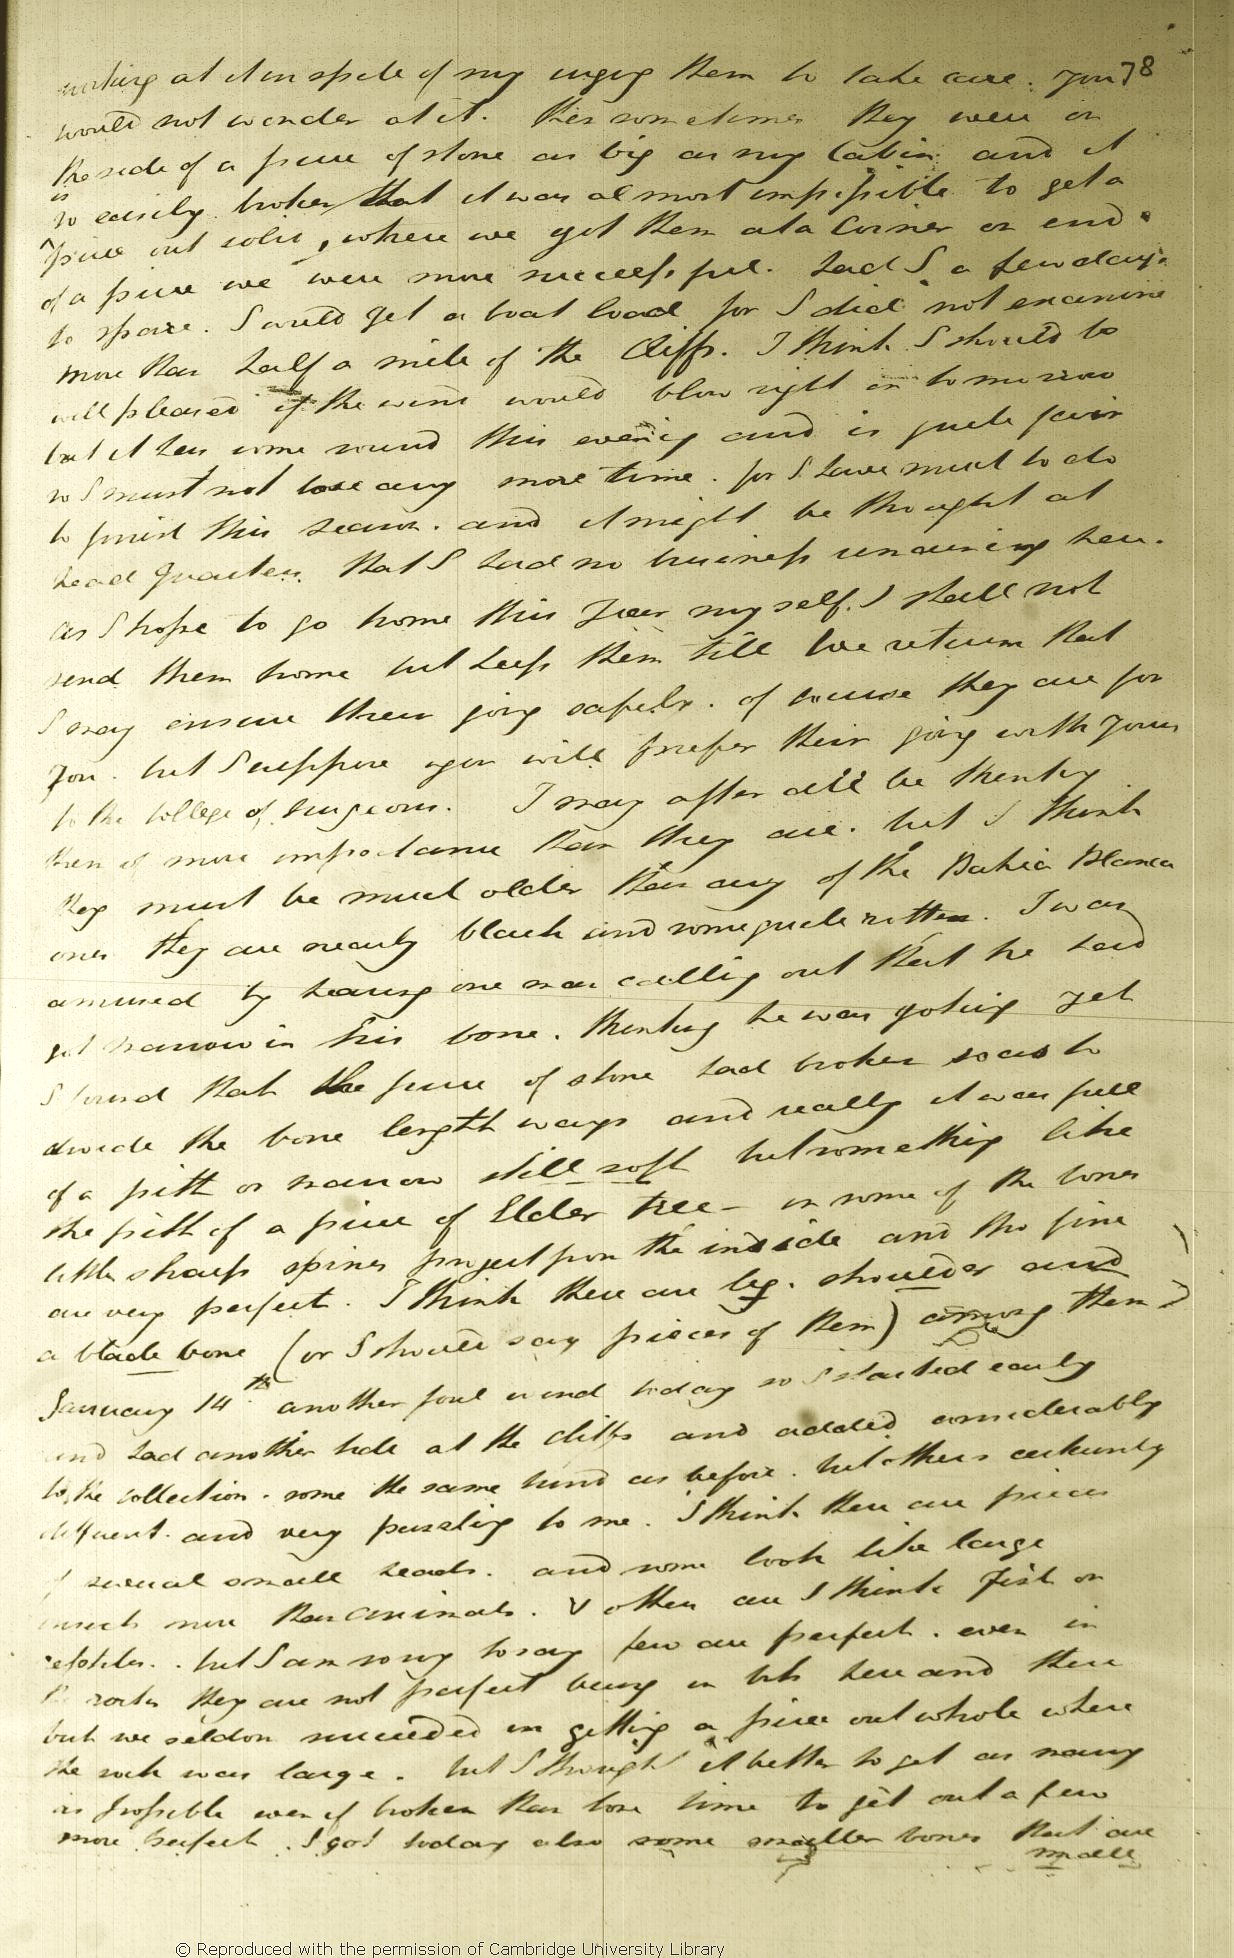 working at it in spite of my urging them to take care. You 78
would not wonder at it. then sometimes they were in
the side of a piece of stone as big as my Cabin and it
is so easily broken that it was almost impossible to get a
piece out solid, where we got them at a Corner or end
of a piece we were more successful. Had I a few days
to spare. I could get a boat load for I did not examine
more than half a mile of the Cliffs. I think I should be
well pleased if the wind would blow right in tomorrow
but it has come round this evening and is quite fair
so I must not lose any more time. for I have much to do
to finish this season. and it might be thought at
head Quarters that I had no business remaining here.
as I hope to go home this year myself. I shall not
send them home but keep them till we return that
I may ensure their going safely. of course they are for
you. but I suppose you will prefer their going with yours
to the College of Surgeons. I may after all be thinking
them of more importance than they are. but I think
they must be much older than any of the Bahia Blanca
ones they are nearly black and some quite rotten. I was
amused by hearing one man calling out that he had
got marrow in his bone. thinking he was joking yet
I found that the piece of stone had broken so as to
divide the bone length ways and really it was full
of a pith or marrow still soft but something like
the pith of a piece of Elder tree – in some of the bones
little sharp spines project from the inside and tho fine
are very perfect. I think there are leg. shoulder and
a blade bone (or I should say pieces of them) among them
January 14th. another foul wind today so I started early
and had another tide at the cliffs and added considerably
to the collection. some the same kind as before. but others certainly
different. and very puzzling to me. I think there are pieces
of several small heads. and some look like large
insects more than animals. & others are I think Fish or
reptiles. but I am sorry to say few are perfect. even in
the rocks they are not perfect being in bits here and there
but we seldom succeeded in getting a piece out whole where
the rock was large. but I thought it better to get as many
as possible even if broken than lose time to get out a few
more perfect. I got today also some smaller bones that are
small
© Reproduced with the permission of Cambridge University Library